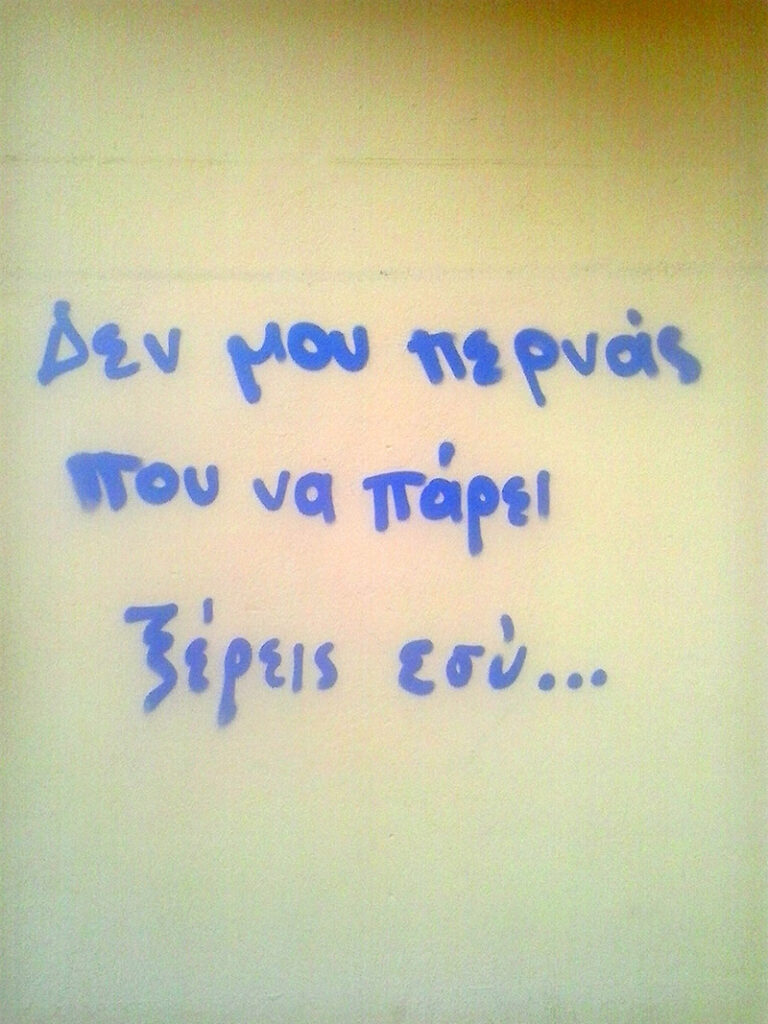 Δεν μου περνάς
που να πάρει
ξέρεις εσύ...